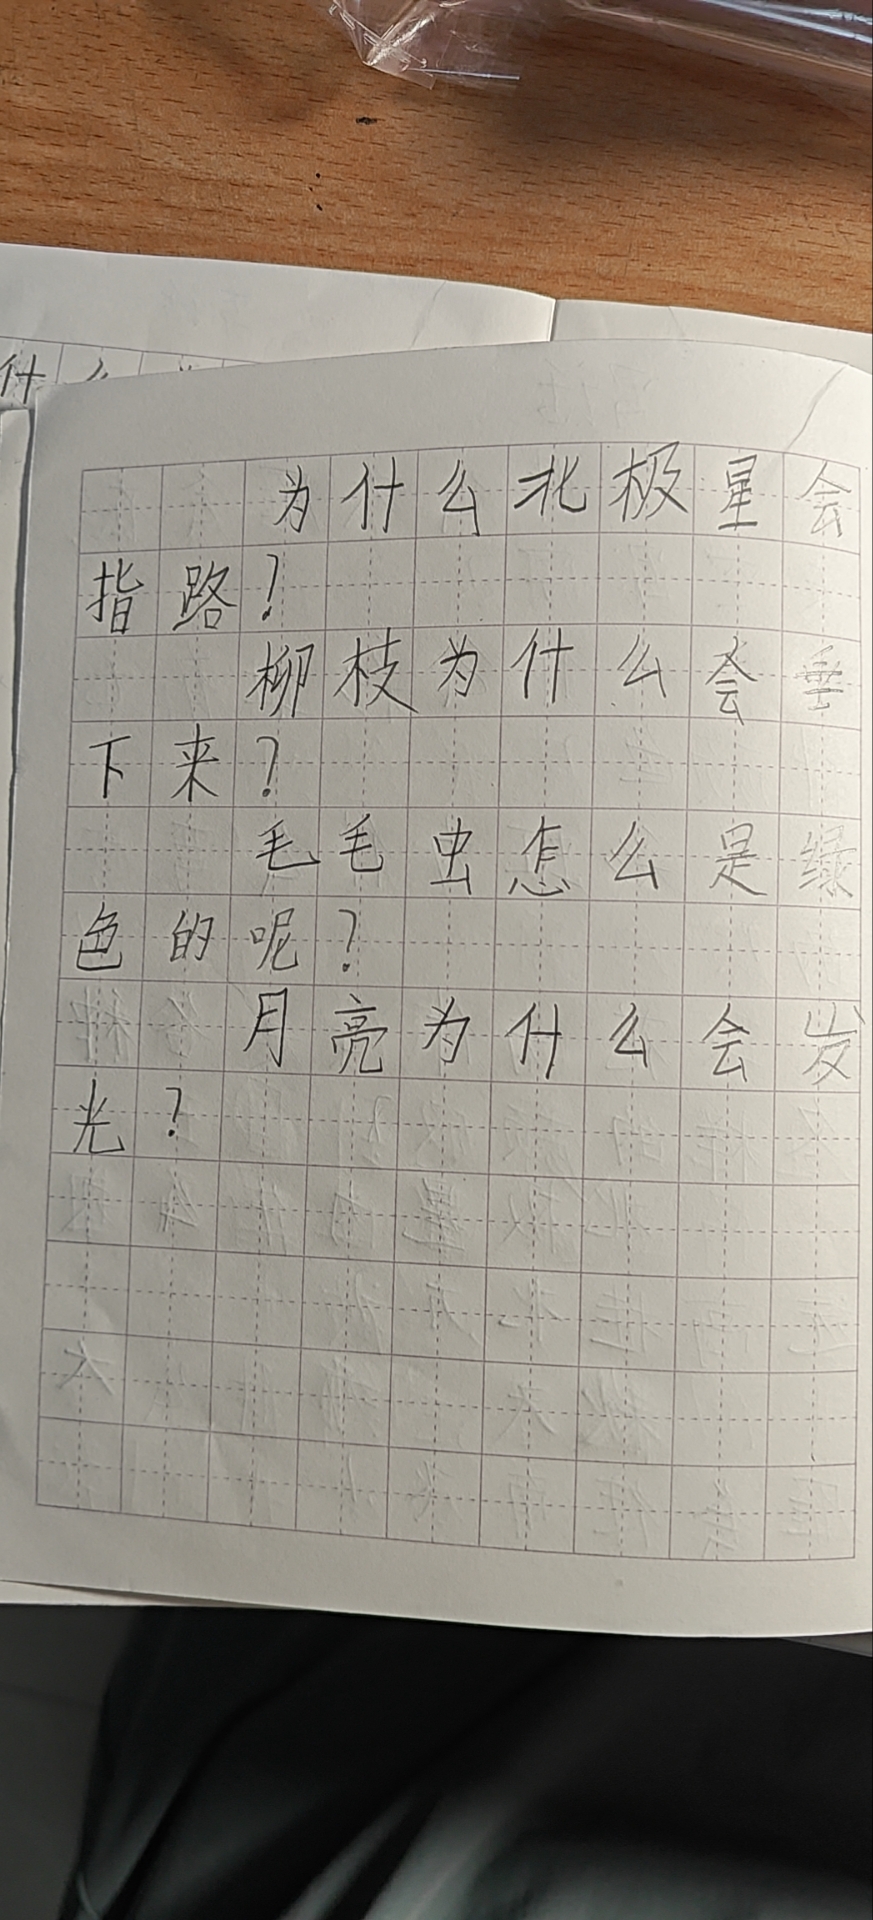 什么
为什么北极星会
指路？
柳枝为什么会垂
下来？
毛毛虫怎么是绿
色的呢？
月亮为什么会发
光？